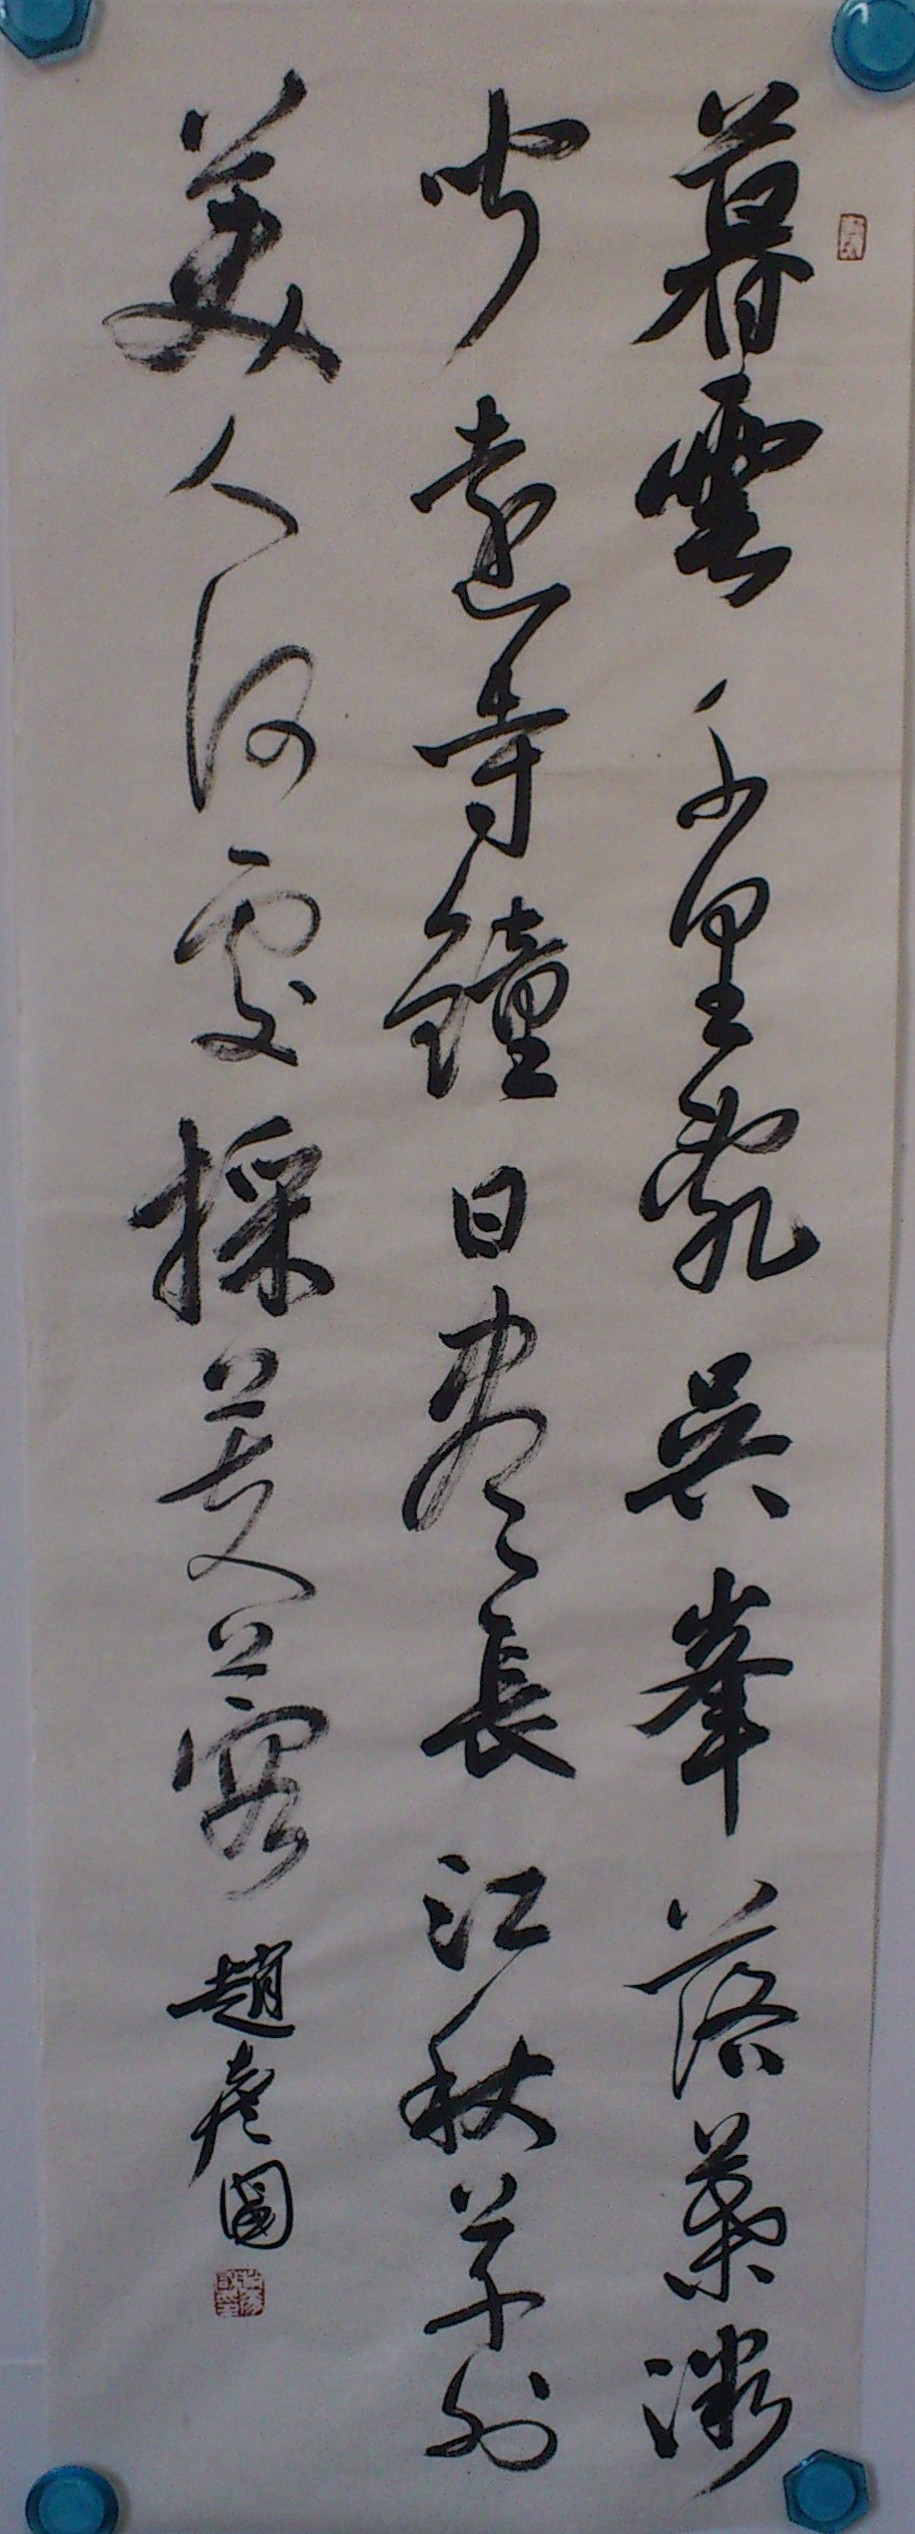 暮雲千里亂吳峯落葉微
聞遠寺鐘日盡長江秋草外
美人何處採芙蓉 趙國